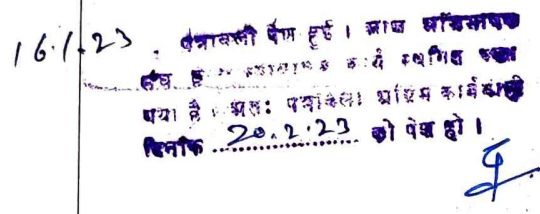 16.1.23 . पत्रावली पेश हुई । आज अभिभाषक
संघ के न्यायिक कार्य स्थगित रखा
गया है । अतः पत्रावली अग्रिम कार्यवाही
दिनांक 20.2.23 को पेश हो ।